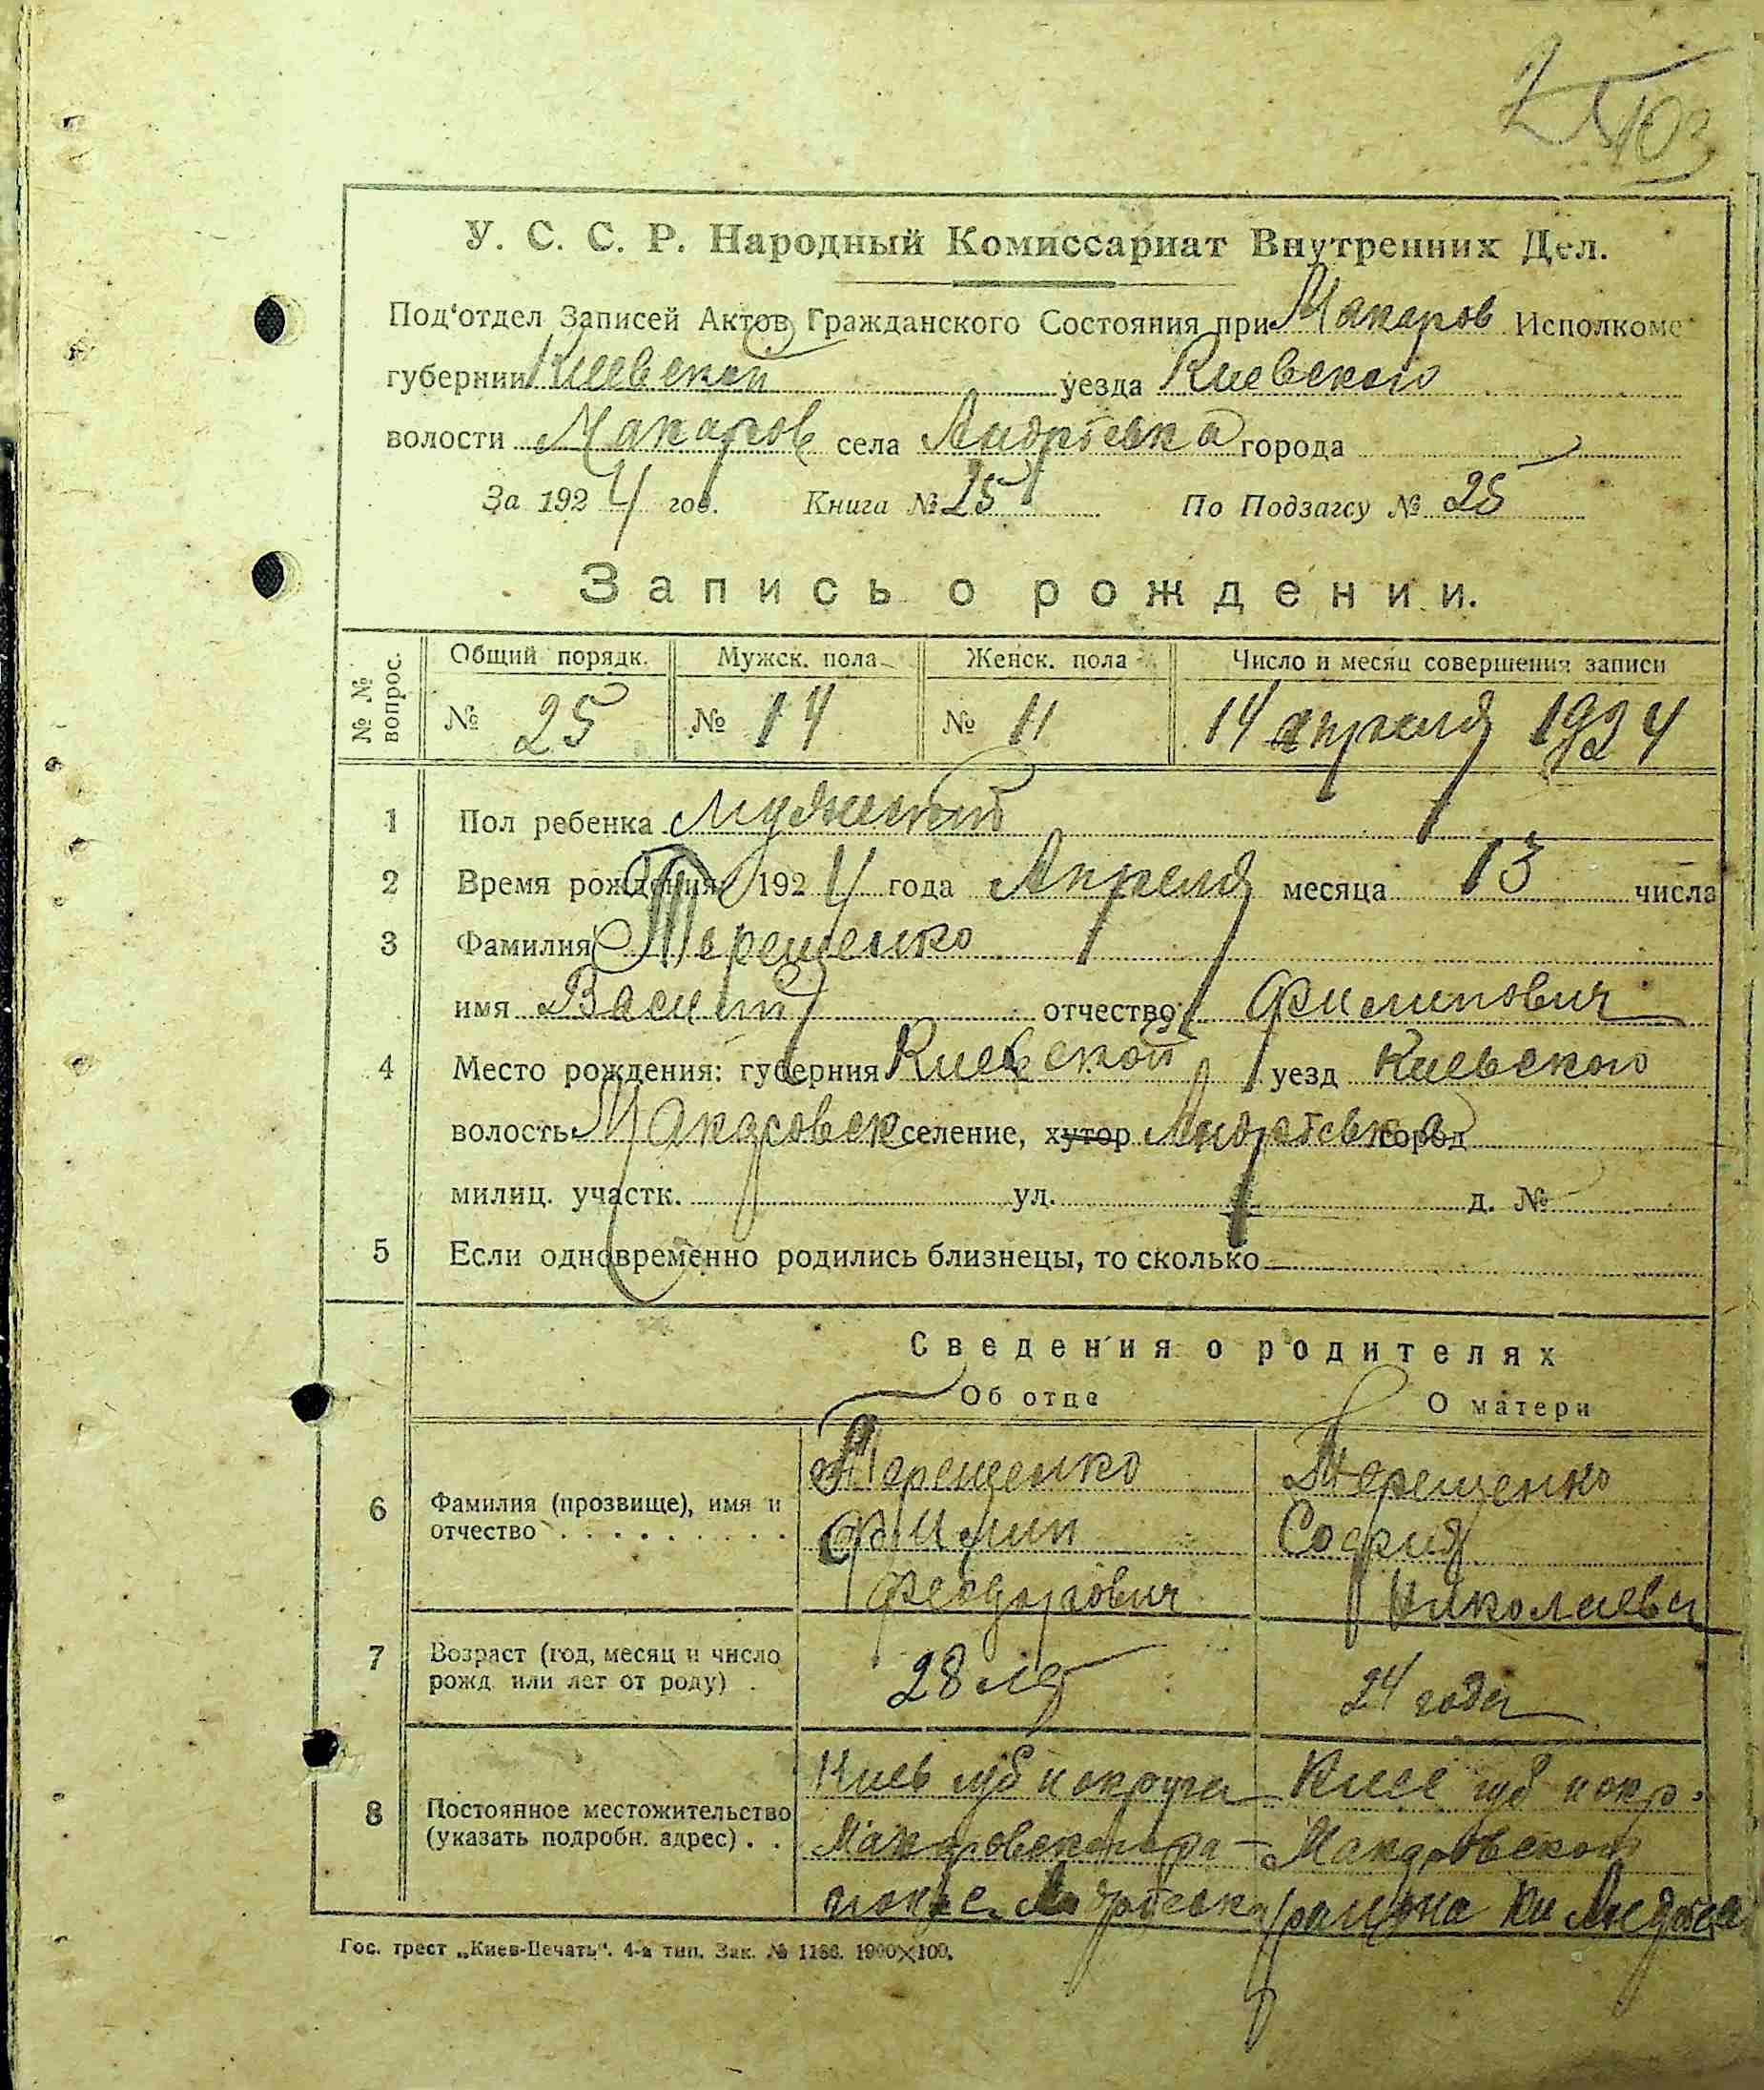 103
У. С. С. Р. Народный Комиссариат Внутренних Дел.
Под'отдел Записей Актов Гражданского Состояния при Макаров Исполкоме
губернии Киевской уезда Киевского
волости Макаров села Андреевка города
За 1924 год. Книга № 25 По Подзагсу № 25
Запись о рождении.
№ № вопрос. Общий порядк. Мужск. пола Женск. пола Число и месяц совершения записи
№ 25 № 14 № 11 14 апреля 1924
1 Пол ребенка мужской
2 Время рождения 1924 года Апреля месяца 13 числа
3 Фамилия Терещенко
имя Василий отчество Филипович
4 Место рождения: губерния Киевской уезд Киевского
волость Макаровск селение, хутор Андреевка город
милиц. участк. ул. д. №
5 Если одновременно родились близнецы, то сколько —
Сведения о родителях
Об отце О матери
6 Фамилия (прозвище), имя и отчество
Терещенко Терещенко
Филип София
Феодорович Николаевн
7 Возраст (год, месяц и число рожд. или лет от роду)
28 лет 24 года
8 Постоянное местожительство (указать подробн. адрес)
Киев губ и округа Киев губ и окр.
Макаровского ра- Макаровского
йона с. Андреевка района
Гос. трест „Киев-Печать". 4-я тип. Зак. № 1186. 1900×100.